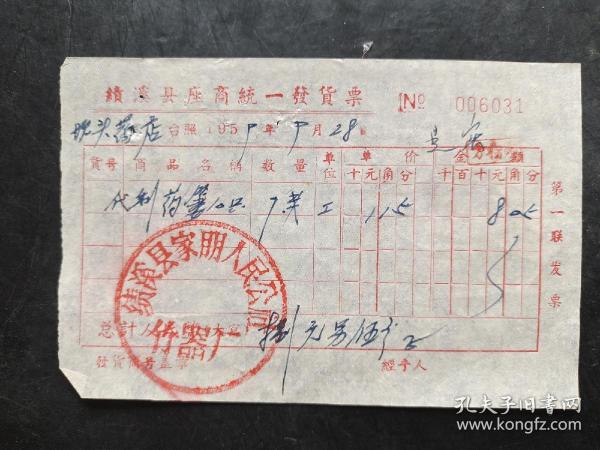 績溪县座商統一發貨票
№ 006031
坎头药店台照 1959年9月28日
貨号 商品名稱 数量 單位 單价 十元角分 金額 千百十元角分
代制药 7 工 1 1 5 8 0 5
第一联 发票
绩溪县家朋人民公社
竹器厂
总計人民币
捌元另伍分
發貨商号蓋章
經手人
孔夫子旧书网
www.kongfz.com